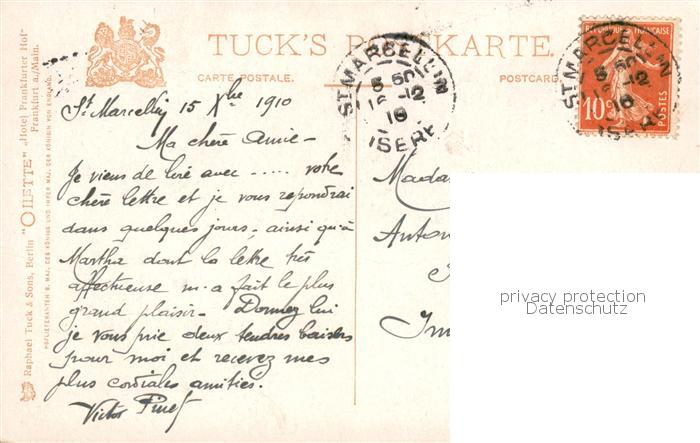 TUCK'S POSTKARTE.
CARTE POSTALE.
POSTCARD
Raphael Tuck & Sons, Berlin "OILETTE" „Hotel Frankfurter Hof"
Frankfurt a./Main.
HOFLIEFERANTEN S. MAJ. DES KÖNIGS UND IHRER MAJ. DER KÖNIGIN VON ENGLAND.
ST MARCELLIN
5 50
16 -12
10
ISERE
ST MARCELLIN
5 50
16 -12
10
ISERE
10c
POSTES
St Marcellin 15 Xbre 1910
Ma chère Amie-
Je viens de lire avec ..... votre
chère lettre et je vous repondrai
dans quelques jours - ainsi qu'à
Martha dont la lettre très
affectueuse m'a fait le plus
grand plaisir - Donnez lui
je vous prie deux tendres baisers
pour moi et recevez mes
plus cordiales amitiés.
Victor Pinet
Mada
Anton
Im
privacy protection
Datenschutz